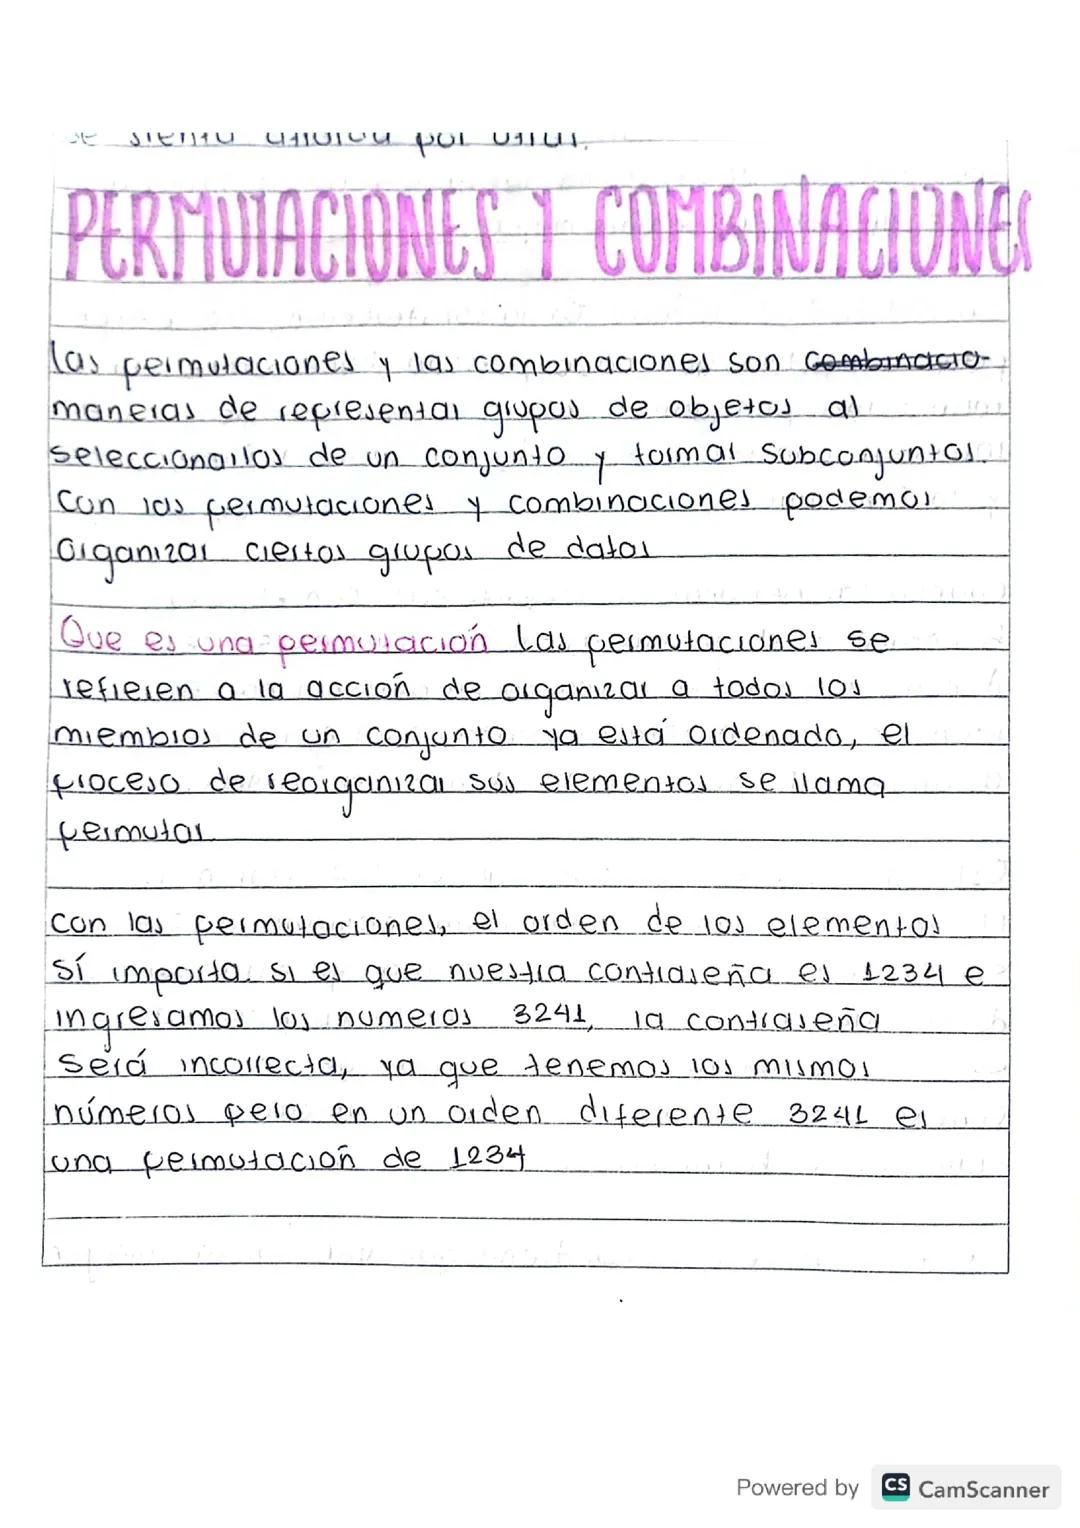 PERMUTACIONES Y COMBINACIONES
las permutaciones y las combinaciones son combinacio-
maneras de representar grupos de objetos al
seleccionarlos de un conjunto y formar subconjuntos.
Con las permutaciones y combinaciones podemos
organizar ciertos grupos de datos
Que es una permutación Las permutaciones se
refieren a la acción de organizar a todos los
miembros de un conjunto ya está ordenado, el
proceso de reorganizar sus elementos se llama
permutar
Con las permutaciones, el orden de los elementos
sí importa si es que nuestra contraseña es 1234 e
ingresamos los numeros 3241, la contraseña
Será incorrecta, ya que tenemos los mismos
números pero en un orden diferente 3241 es
una permutación de 1234
Powered by CS CamScanner